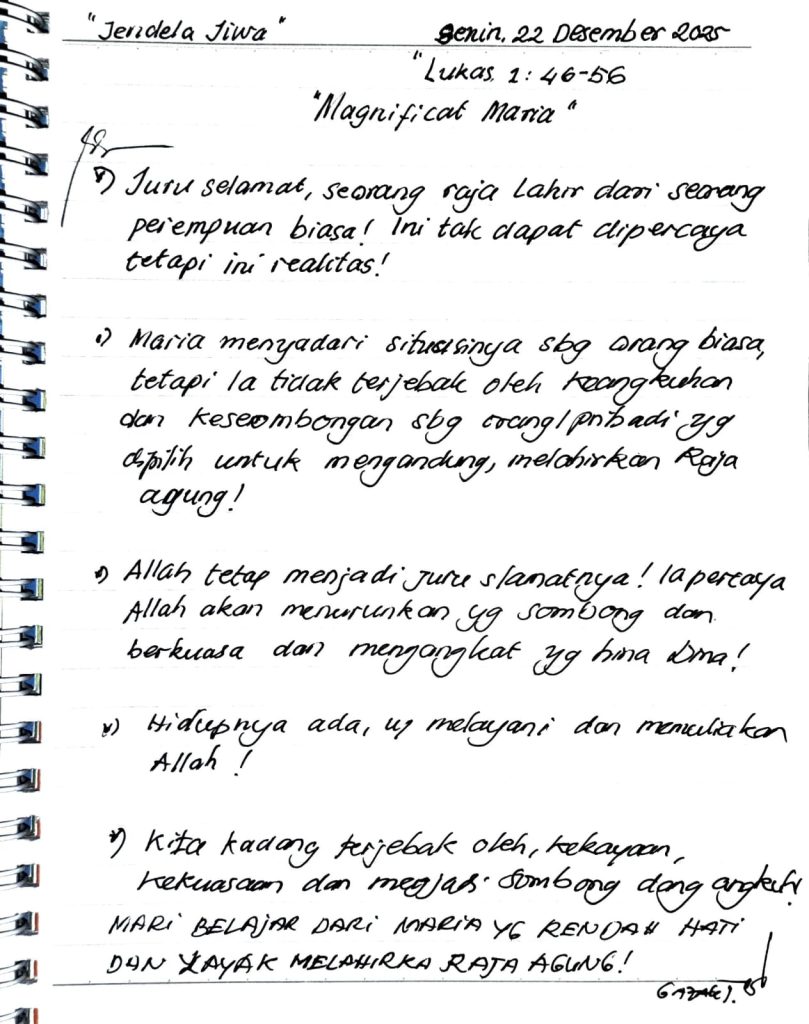 "Jendela Jiwa" Senin, 22 Desember 2025
"Lukas. 1: 46-56
"Magnificat Maria"
*) Juru selamat, seorang raja Lahir dari seorang
perempuan biasa! Ini tak dapat dipercaya
tetapi ini realitas!
*) Maria menyadari situasinya sbg orang biasa,
tetapi Ia tidak terjebak oleh keangkuhan
dan kesombongan sbg orang/pribadi yg
dipilih untuk mengandung, melahirkan Raja
agung!
*) Allah tetap menjadi juru slamatnya! Ia percaya
Allah akan menurunkan yg sombong dan
berkuasa dan mengangkat yg hina Dina!
*) Hidupnya ada, u/ melayani dan memuliakan
Allah!
*) Kita kadang terjebak oleh, kekayaan,
kekuasaan dan menjadi sombong dang angkuh!
MARI BELAJAR DARI MARIA YG RENDAH HATI
DAN LAYAK MELAHIRKA RAJA AGUNG!